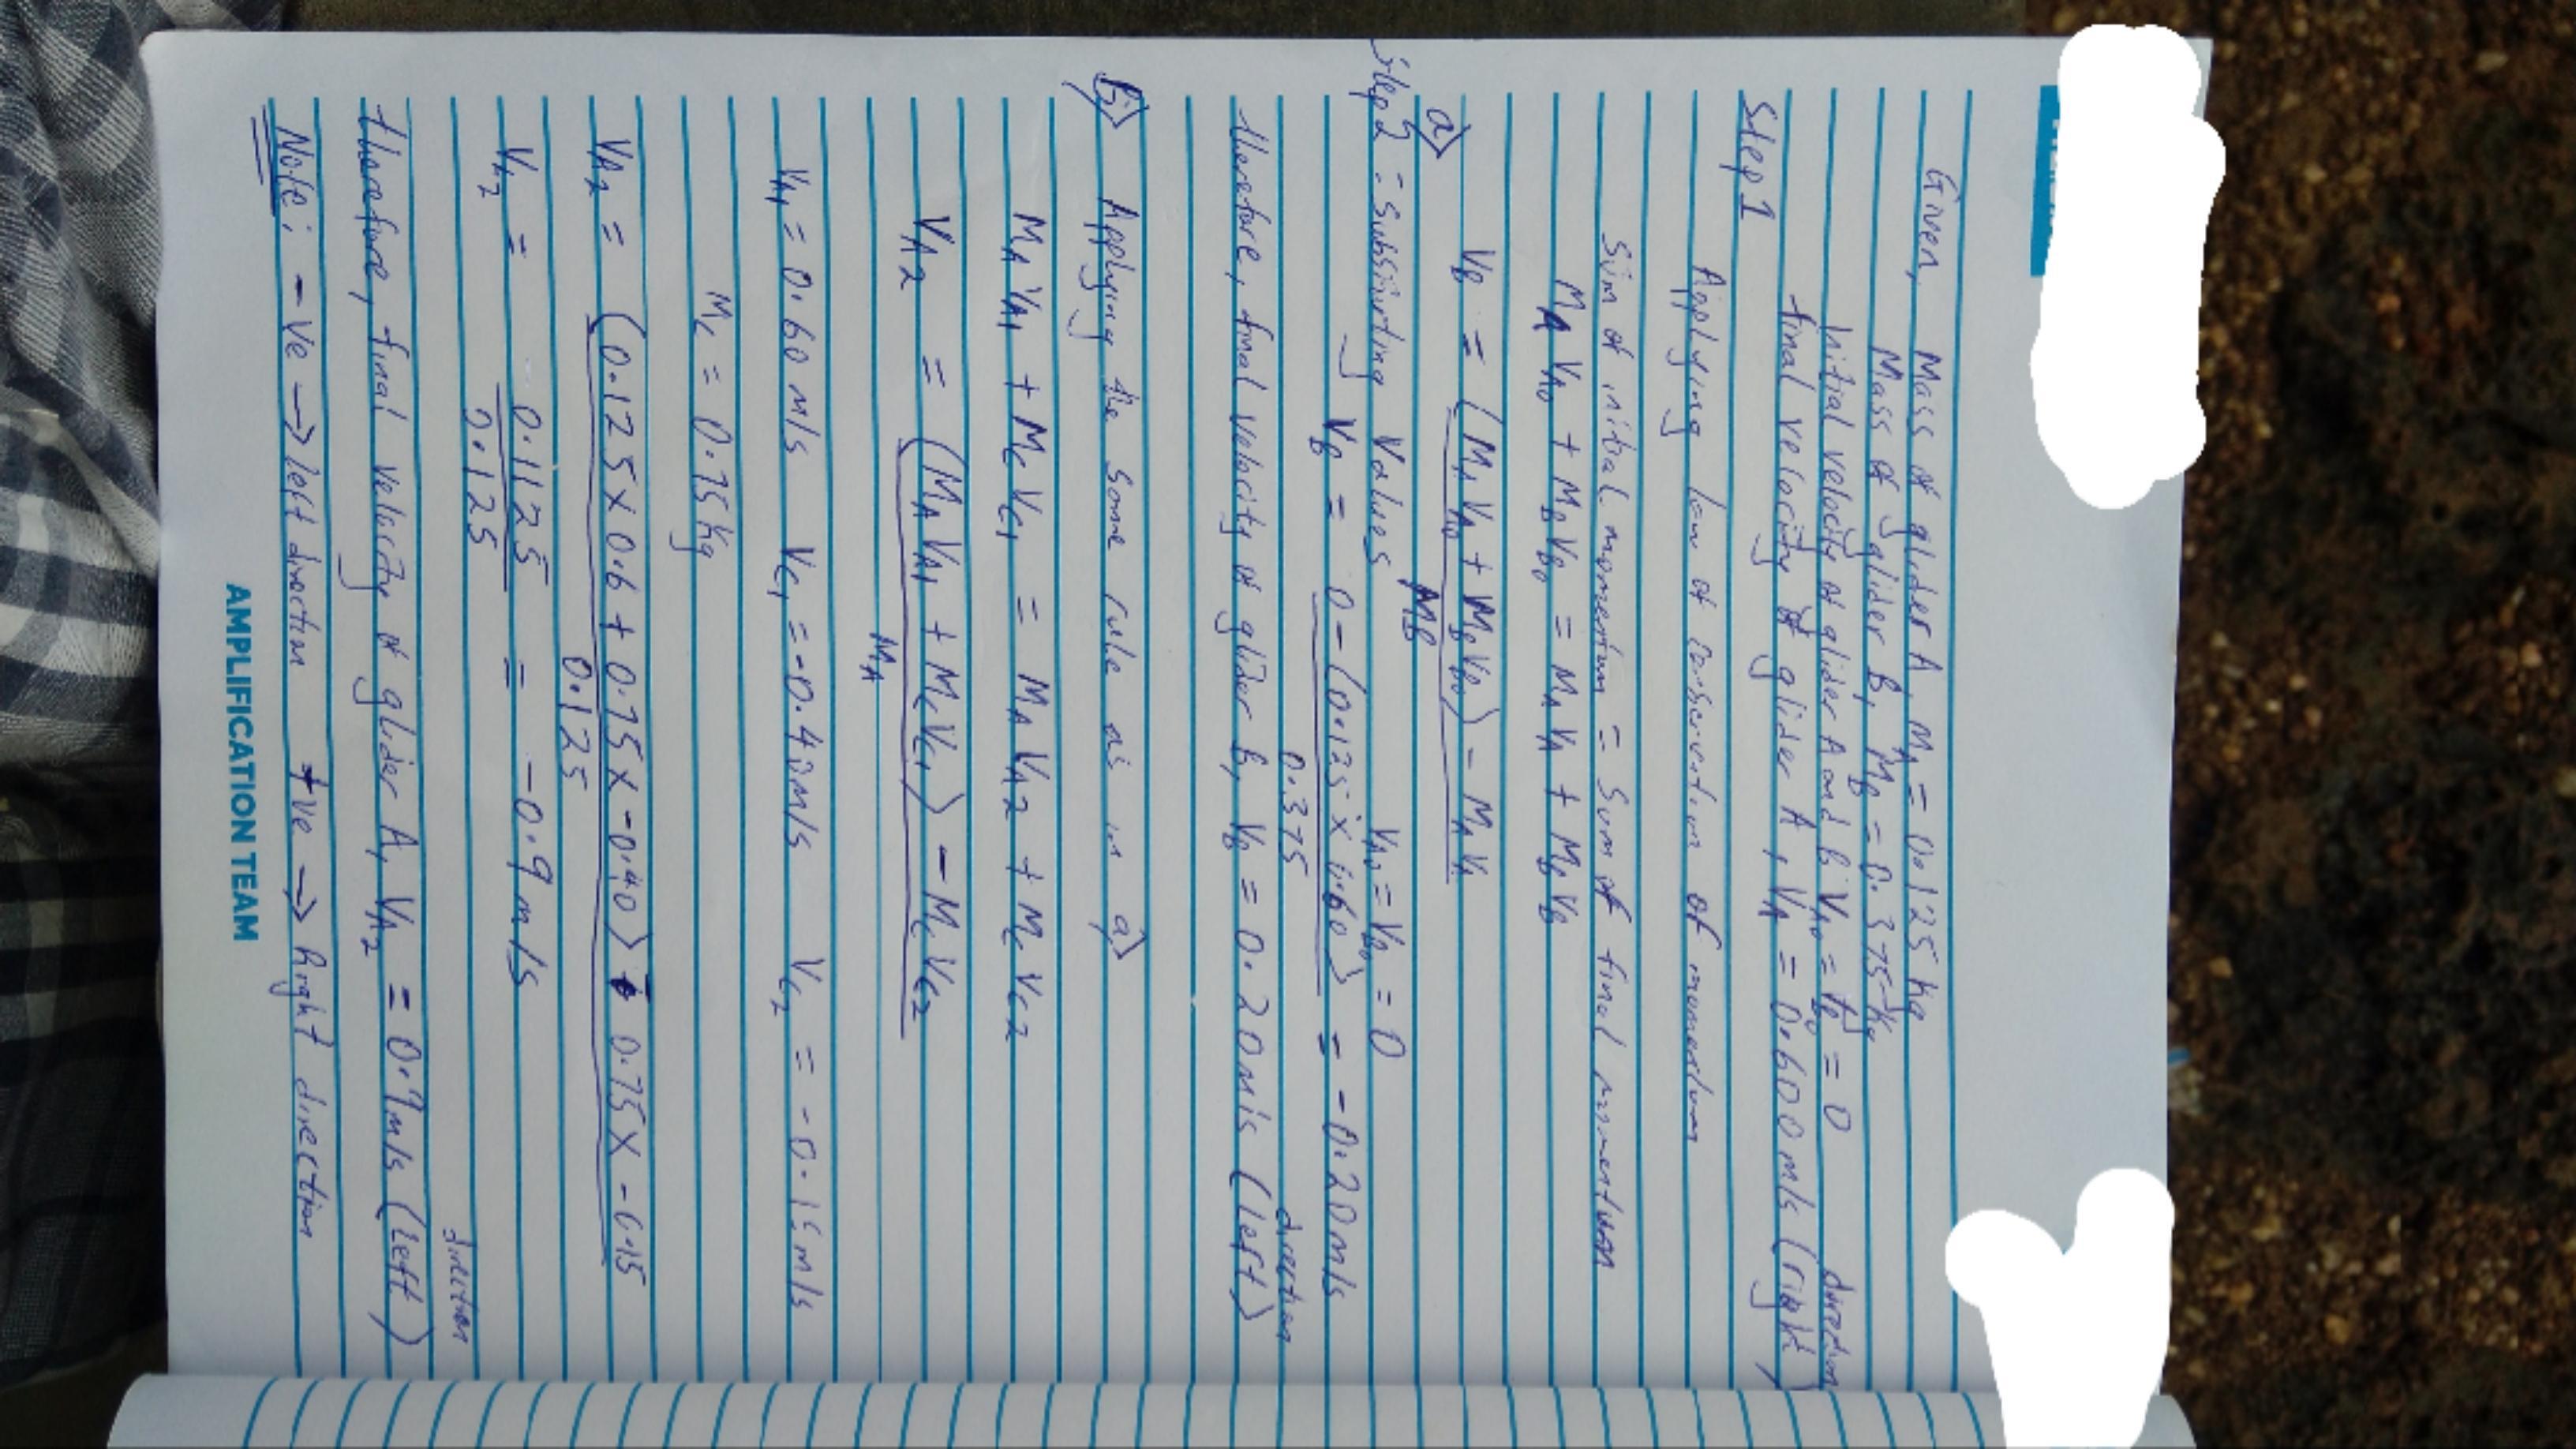 Given, Mass of glider A, MA = 0.125 kg
Mass of glider B, MB = 0.375 kg
Initial velocity of glider A and B VA0 = VB0 = 0
final velocity of glider A, VA = 0.600 m/s (right) direction
Step 1
Applying law of conservation of momentum
Sum of initial momentum = Sum of final momentum
MA VA0 + MB VB0 = MA VA + MB VB
a) VB = (MA VA0 + MB VB0) - MA VA
MB
Step 2 = Substituting Values VA0 = VB0 = 0
VB = 0 - (0.125 × 0.60) = -0.20 m/s
0.375
therefore, final velocity of glider B, VB = 0.20 m/s (left) direction
B) Applying the same rule as in a)
MA VA1 + MC VC1 = MA VA2 + MC VC2
VA2 = (MA VA1 + MC VC1) - MC VC2
MA
VA1 = 0.60 m/s VC1 = -0.40 m/s VC2 = -0.15 m/s
MC = 0.75 kg
VA2 = (0.125 × 0.6 + 0.75 × -0.40) + 0.75 × -0.15
0.125
VA2 = 0.1125 = -0.9 m/s
0.125
therefore, final velocity of glider A, VA2 = 0.9 m/s (left) direction
Note: -ve → left direction +ve → Right direction
AMPLIFICATION TEAM